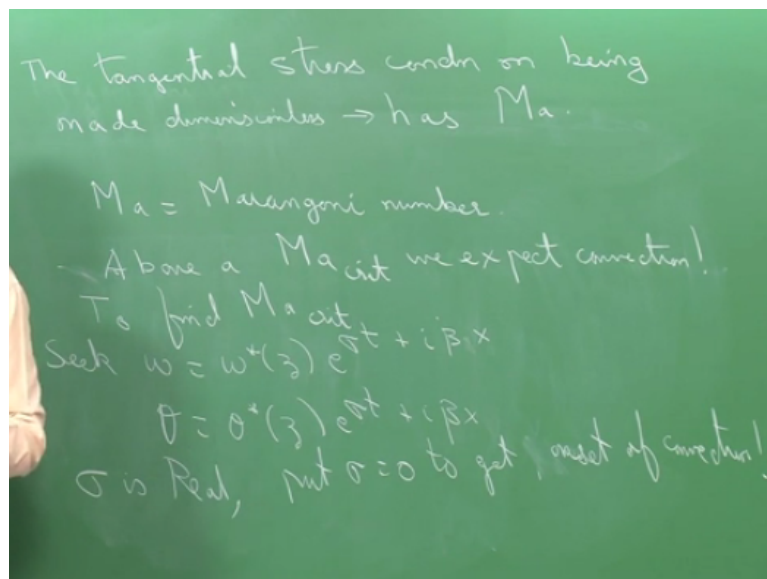 The tangential stress condn on being
made dimensionless → has Ma.
Ma = Marangoni number.
- Above a Ma crit we expect convection!
To find Ma crit
Seek w = w*(z) e^σt + iβx
θ = θ*(z) e^σt + iβx
σ is Real, put σ = 0 to get onset of convection!